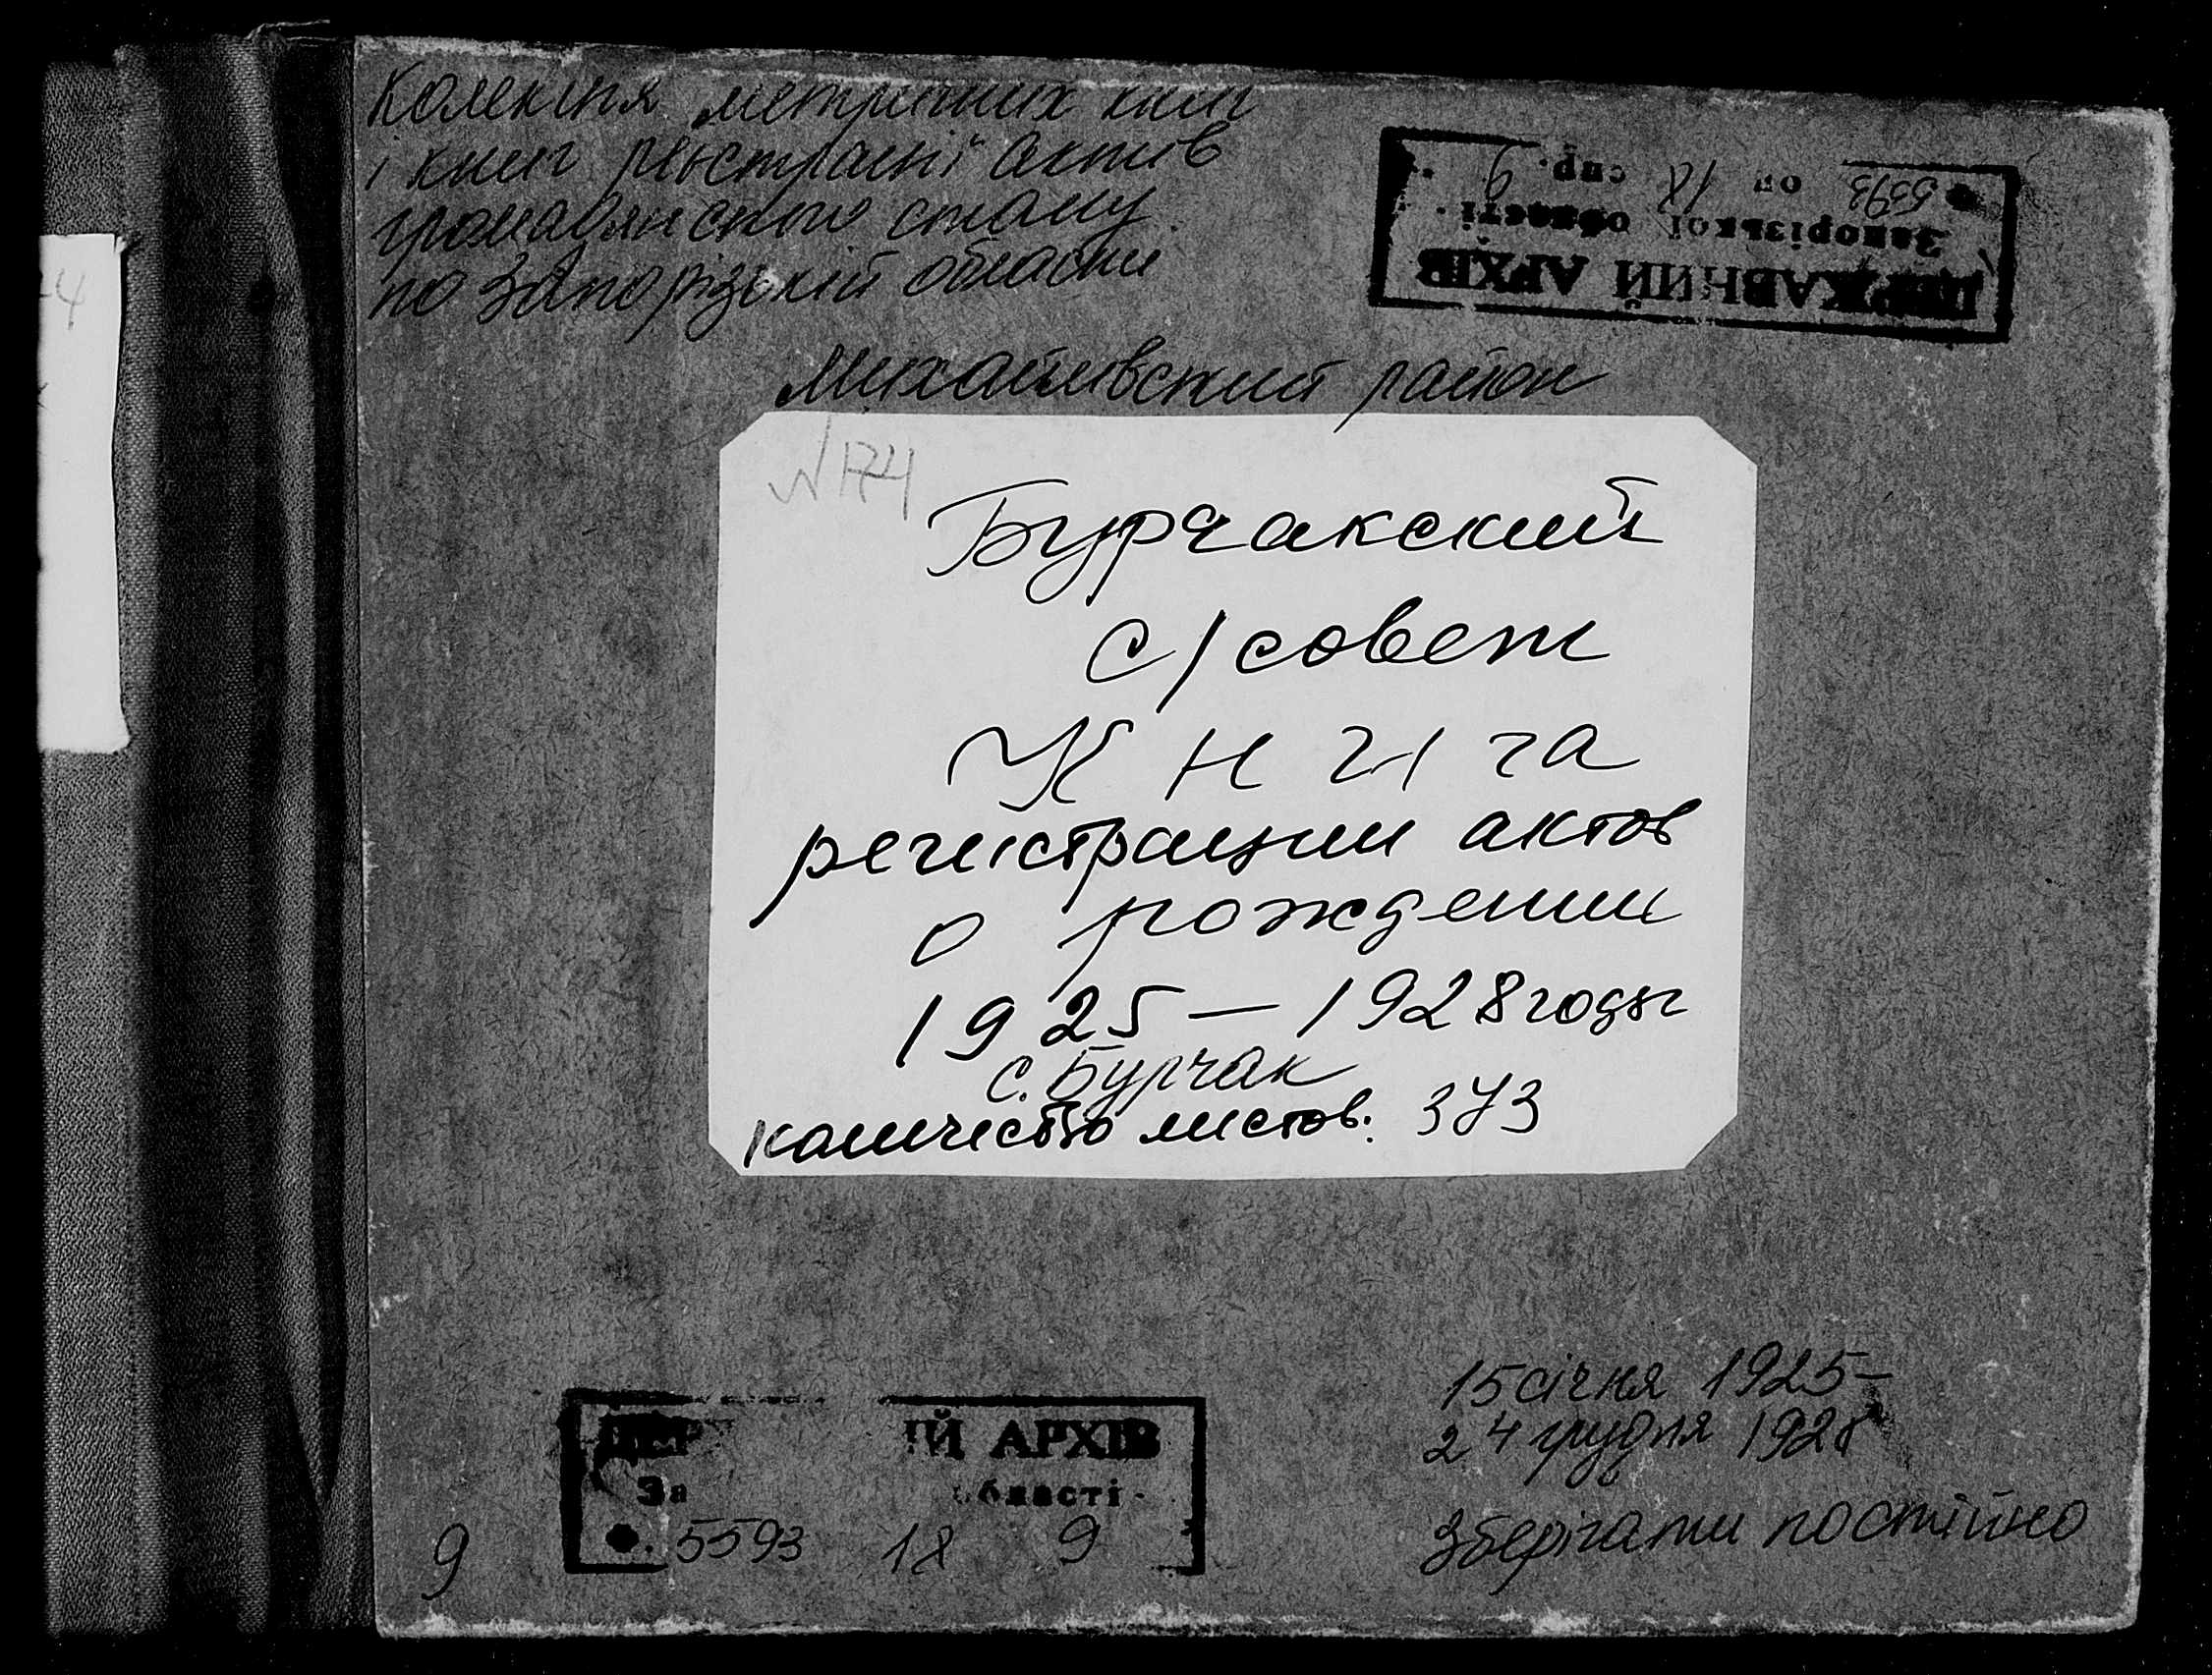 Колекція метричних книг
і книг реєстрації актів
громадянського стану
по Запорізькій області
ДЕРЖАВНИЙ АРХІВ
Запорізької області
5593 оп 18 спр. 9
Михайлівський район
№ 174
Бурчакский
с/совет
Книга
регистрации актов
о рождении
1925 — 1928 годы
с. Бурчак
количество листов: 373
15 січня 1925 –
24 грудня 1928
Зберігати постійно
ДЕР ИЙ АРХІВ
За області
5593 18 9
9